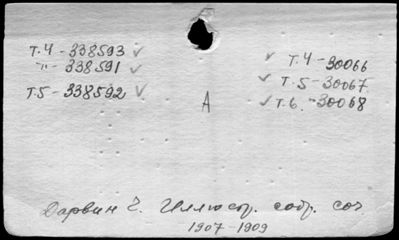 т.4-338593 ✓
"-338591 ✓
т.5-338592 ✓
т.4-30066
✓ т.5-30067
✓ т.6.-30068
А
Дарвин Ч. Иллюстр. собр. соч
1907-1909